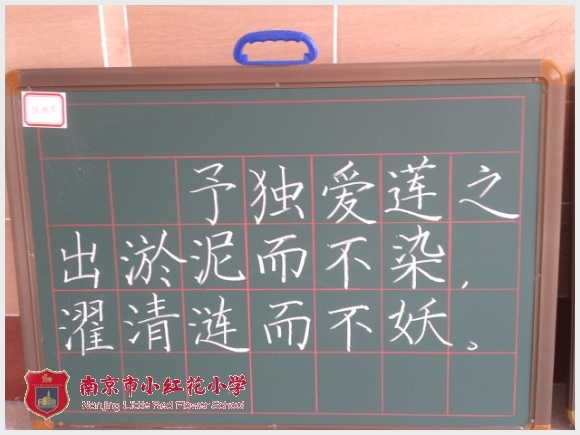 予独爱莲之
出淤泥而不染，
濯清涟而不妖。
南京市小红花小学
Nanjing Little Red Flower School